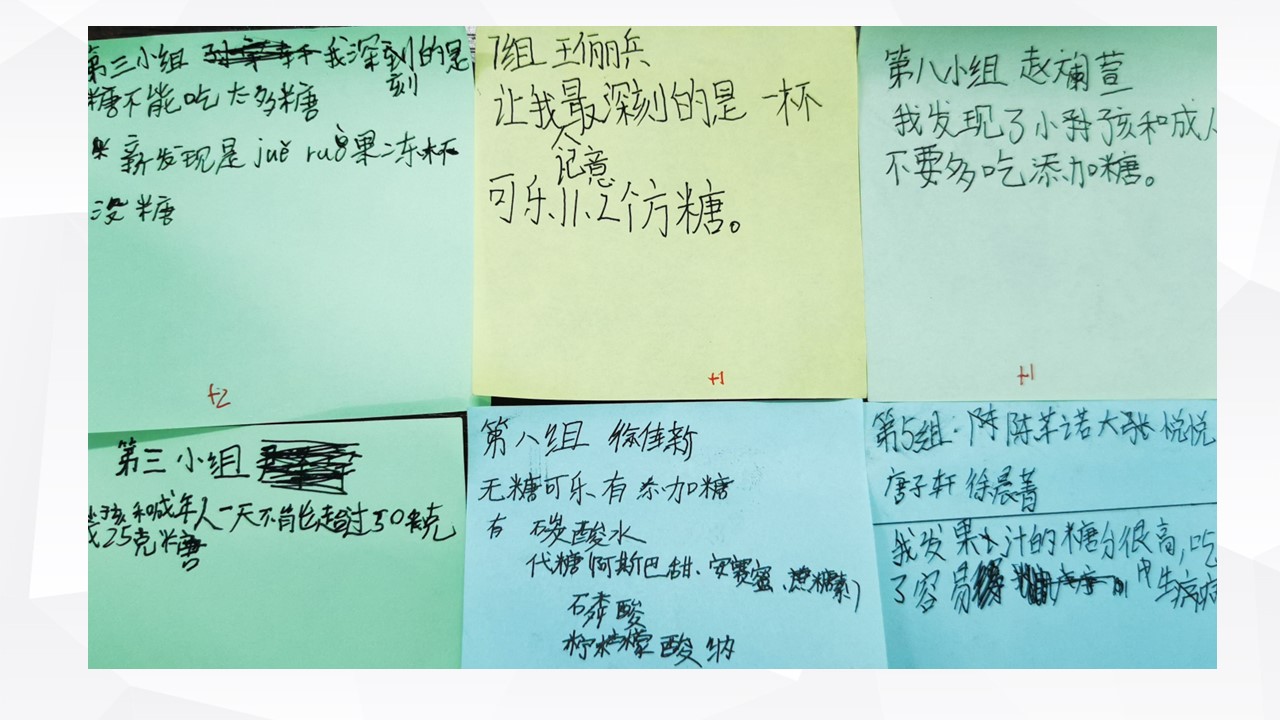 第三小组 我深刻的是
刻
糖不能吃太多糖
新发现是juě ruò果冻杯
没糖
+2
7组 王俪兵
让我最深刻的是一杯
记意
可乐11.2个方糖。
+1
第八小组 赵斓萱
我发现了小孩子和成人
不要多吃添加糖。
+1
第三小组
孩和成年人一天不能超过50克
25克糖
第八组 徐佳新
无糖可乐有添加糖
有 碳酸水
代糖(阿斯巴甜、安赛蜜、蔗糖素)
酸
柠檬酸钠
第5组·陈 陈苇诺大张悦悦
唐子轩 徐晨菁
我发果汁的糖分很高,吃
了容易 生病